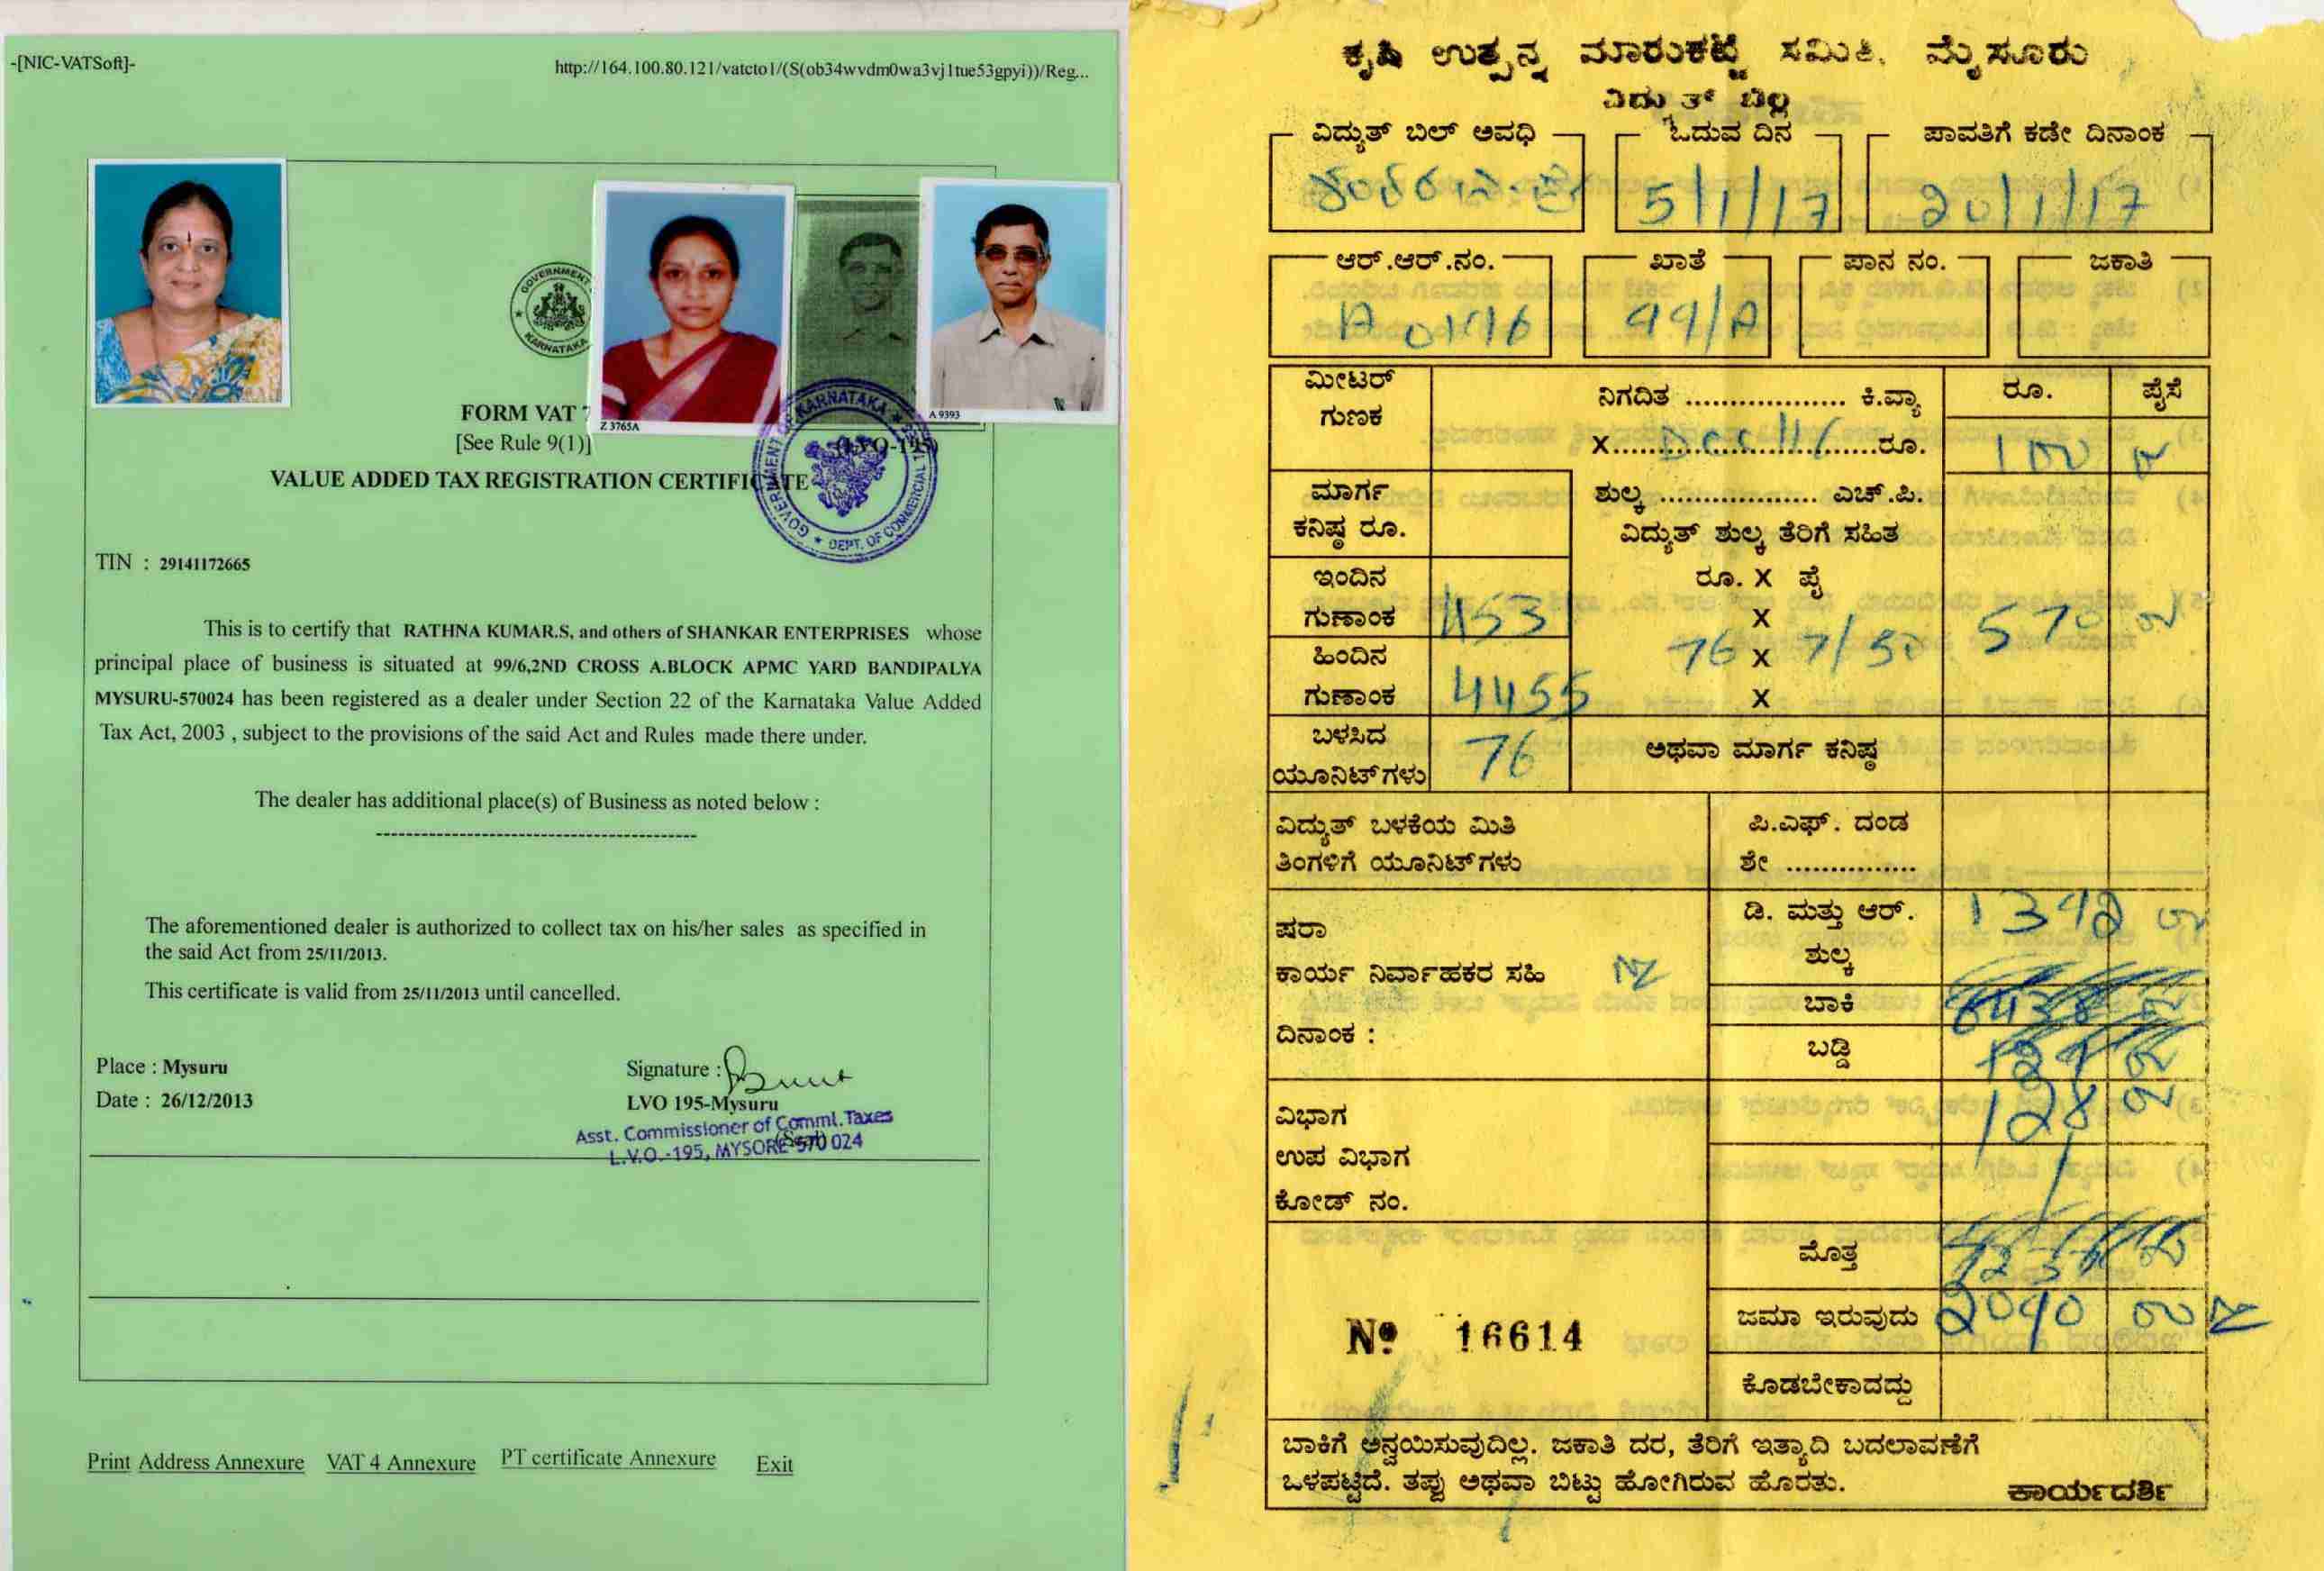 -[NIC-VATSoft]-
http://164.100.80.121/vatcto1/(S(ob34wvdm0wa3vj1tue53gpyi))/Reg...
GOVERNMENT
KARNATAKA
Z 3765A
A 9393
FORM VAT 7
(LVO-195)
[See Rule 9(1)]
VALUE ADDED TAX REGISTRATION CERTIFICATE
GOVERNMENT OF KARNATAKA
DEPT. OF COMMERCIAL
TIN : 29141172665
This is to certify that RATHNA KUMAR.S, and others of SHANKAR ENTERPRISES whose
principal place of business is situated at 99/6,2ND CROSS A.BLOCK APMC YARD BANDIPALYA
MYSURU-570024 has been registered as a dealer under Section 22 of the Karnataka Value Added
Tax Act, 2003 , subject to the provisions of the said Act and Rules made there under.
The dealer has additional place(s) of Business as noted below :
--------------------------------------------
The aforementioned dealer is authorized to collect tax on his/her sales as specified in
the said Act from 25/11/2013.
This certificate is valid from 25/11/2013 until cancelled.
Place : Mysuru
Signature :
Date : 26/12/2013
LVO 195-Mysuru
(Seal)
Asst. Commissioner of Comml. Taxes
L.V.O.-195, MYSORE-570 024
Print Address Annexure VAT 4 Annexure PT certificate Annexure Exit
ಕೃಷಿ ಉತ್ಪನ್ನ ಮಾರುಕಟ್ಟೆ ಸಮಿತಿ, ಮೈಸೂರು
ವಿದ್ಯುತ್ ಬಿಲ್ಲು
ವಿದ್ಯುತ್ ಬಿಲ್ ಅವಧಿ
ಓದುವ ದಿನ
ಪಾವತಿಗೆ ಕಡೇ ದಿನಾಂಕ
5/1/17
20/1/17
ಆರ್.ಆರ್.ನಂ.
ಖಾತೆ
ಪಾನ ನಂ.
ಜಕಾತಿ
99/A
ಮೀಟರ್
ಗುಣಕ
ನಿಗದಿತ .................. ಕಿ.ವ್ಯಾ
ರೂ.
ಪೈಸೆ
X..............................ರೂ.
100
ಮಾರ್ಗ
ಕನಿಷ್ಠ ರೂ.
ಶುಲ್ಕ .................. ಎಚ್.ಪಿ.
ವಿದ್ಯುತ್ ಶುಲ್ಕ ತೆರಿಗೆ ಸಹಿತ
ರೂ. X ಪೈ
ಇಂದಿನ
ಗುಣಾಂಕ
X
ಹಿಂದಿನ
ಗುಣಾಂಕ
4455
76 X 7/50
570
X
ಬಳಸಿದ
ಯೂನಿಟ್‌ಗಳು
76
ಅಥವಾ ಮಾರ್ಗ ಕನಿಷ್ಠ
ವಿದ್ಯುತ್ ಬಳಕೆಯ ಮಿತಿ
ತಿಂಗಳಿಗೆ ಯೂನಿಟ್‌ಗಳು
ಪಿ.ಎಫ್. ದಂಡ
ಶೇ ...............
ಷರಾ
ಕಾರ್ಯ ನಿರ್ವಾಹಕರ ಸಹಿ
ದಿನಾಂಕ :
ಡಿ. ಮತ್ತು ಆರ್.
ಶುಲ್ಕ
1342
ಬಾಕಿ
ಬಡ್ಡಿ
128
ವಿಭಾಗ
ಉಪ ವಿಭಾಗ
ಕೋಡ್ ನಂ.
ಮೊತ್ತ
ಜಮಾ ಇರುವುದು
2040
ಕೊಡಬೇಕಾದದ್ದು
Nº 16614
ಬಾಕಿಗೆ ಅನ್ವಯಿಸುವುದಿಲ್ಲ. ಜಕಾತಿ ದರ, ತೆರಿಗೆ ಇತ್ಯಾದಿ ಬದಲಾವಣೆಗೆ
ಒಳಪಟ್ಟಿದೆ. ತಪ್ಪು ಅಥವಾ ಬಿಟ್ಟು ಹೋಗಿರುವ ಹೊರತು.
ಕಾರ್ಯದರ್ಶಿ